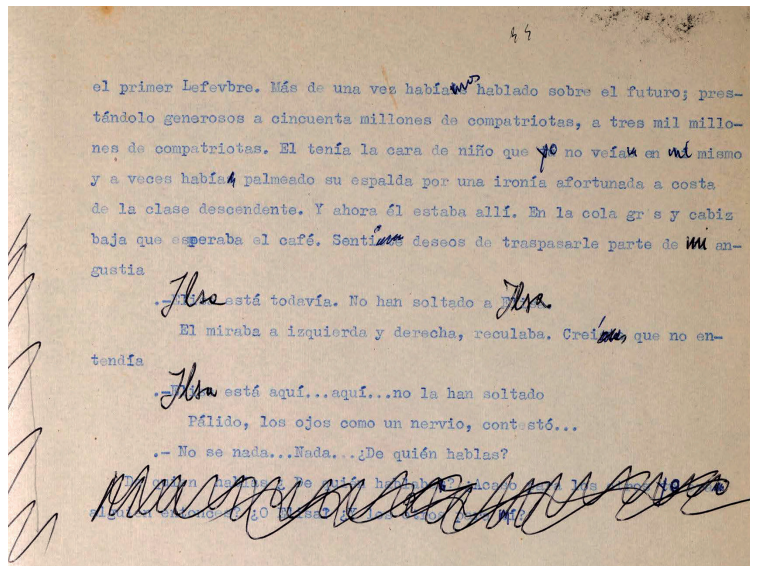 44
el primer Lefevbre. Más de una vez habíamos hablado sobre el futuro; pres-
tándolo generosos a cincuenta millones de compatriotas, a tres mil millo-
nes de compatriotas. El tenía la cara de niño que yo no veía en mí mismo
y a veces había palmeado su espalda por una ironía afortunada a costa
de la clase descendente. Y ahora él estaba allí. En la cola gr s y cabiz
baja que esperaba el café. Sentí deseos de traspasarle parte de mi an-
gustia
.-Ilsa está todavía. No han soltado a Ilsa.
El miraba a izquierda y derecha, reculaba. Creí que no en-
tendía
.-Ilsa está aquí...aquí...no la han soltado
Pálido, los ojos como un nervio, contestó...
.- No se nada...Nada...¿De quién hablas?
De quién hablas ¿ De quién hablaba? ¿Acaso para los otros yo
alguien entonces? ¿O Elisa? ¿Y los otros para mí?